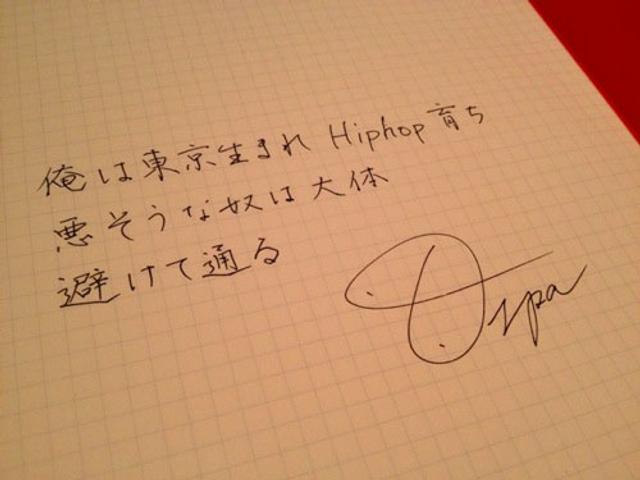 俺は東京生まれ Hiphop育ち
悪そうな奴は大体
避けて通る